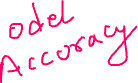 odel
Accuracy